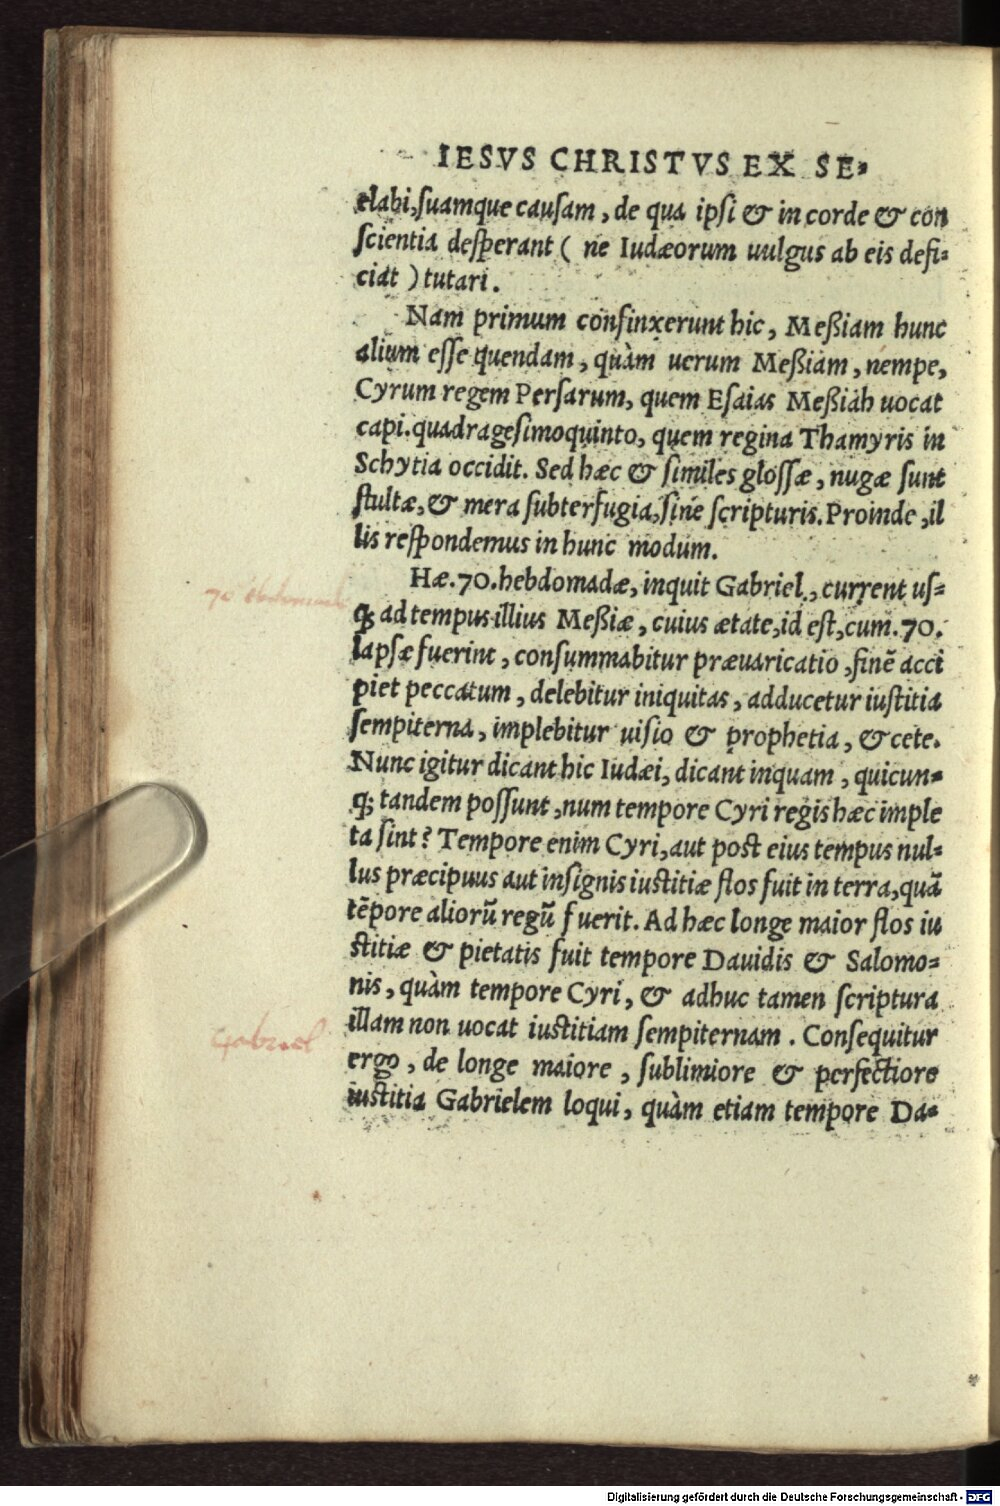 IESVS CHRISTVS EX SE-
elabi, suamque causam, de qua ipsi & in corde & con
scientia desperant ( ne Iudæorum uulgus ab eis defi-
ciat ) tutari.
Nam primum confinxerunt hic, Meßiam hunc
alium esse quendam, quàm uerum Meßiam, nempe,
Cyrum regem Persarum, quem Esaias Meßiah uocat
capi. quadragesimoquinto, quem regina Thamyris in
Schytia occidit. Sed hæc & similes glossæ, nugæ sunt
stultæ, & mera subterfugia, sine scripturis. Proinde, il
lis respondemus in hunc modum.
Hæ. 70. hebdomadæ, inquit Gabriel, current us-
q; ad tempus illius Meßiæ, cuius ætate, id est, cum. 70.
lapsæ fuerint, consummabitur præuaricatio, finẽ acci
piet peccatum, delebitur iniquitas, adducetur iustitia
sempiterna, implebitur uisio & prophetia, & cete.
Nunc igitur dicant hic Iudæi, dicant inquam, quicun-
q; tandem possunt, num tempore Cyri regis hæc imple
ta sint? Tempore enim Cyri, aut post eius tempus nul-
lus præcipuus aut insignis iustitiæ flos fuit in terra, quã
tẽpore aliorũ regũ fuerit. Ad hæc longe maior flos iu
stitiæ & pietatis fuit tempore Dauidis & Salomo-
nis, quàm tempore Cyri, & adhuc tamen scriptura
illam non uocat iustitiam sempiternam. Consequitur
ergo, de longe maiore, sublimiore & perfectiore
iustitia Gabrielem loqui, quàm etiam tempore Da-
70 hebdomade
Gabriel
Digitalisierung gefördert durch die Deutsche Forschungsgemeinschaft - DFG